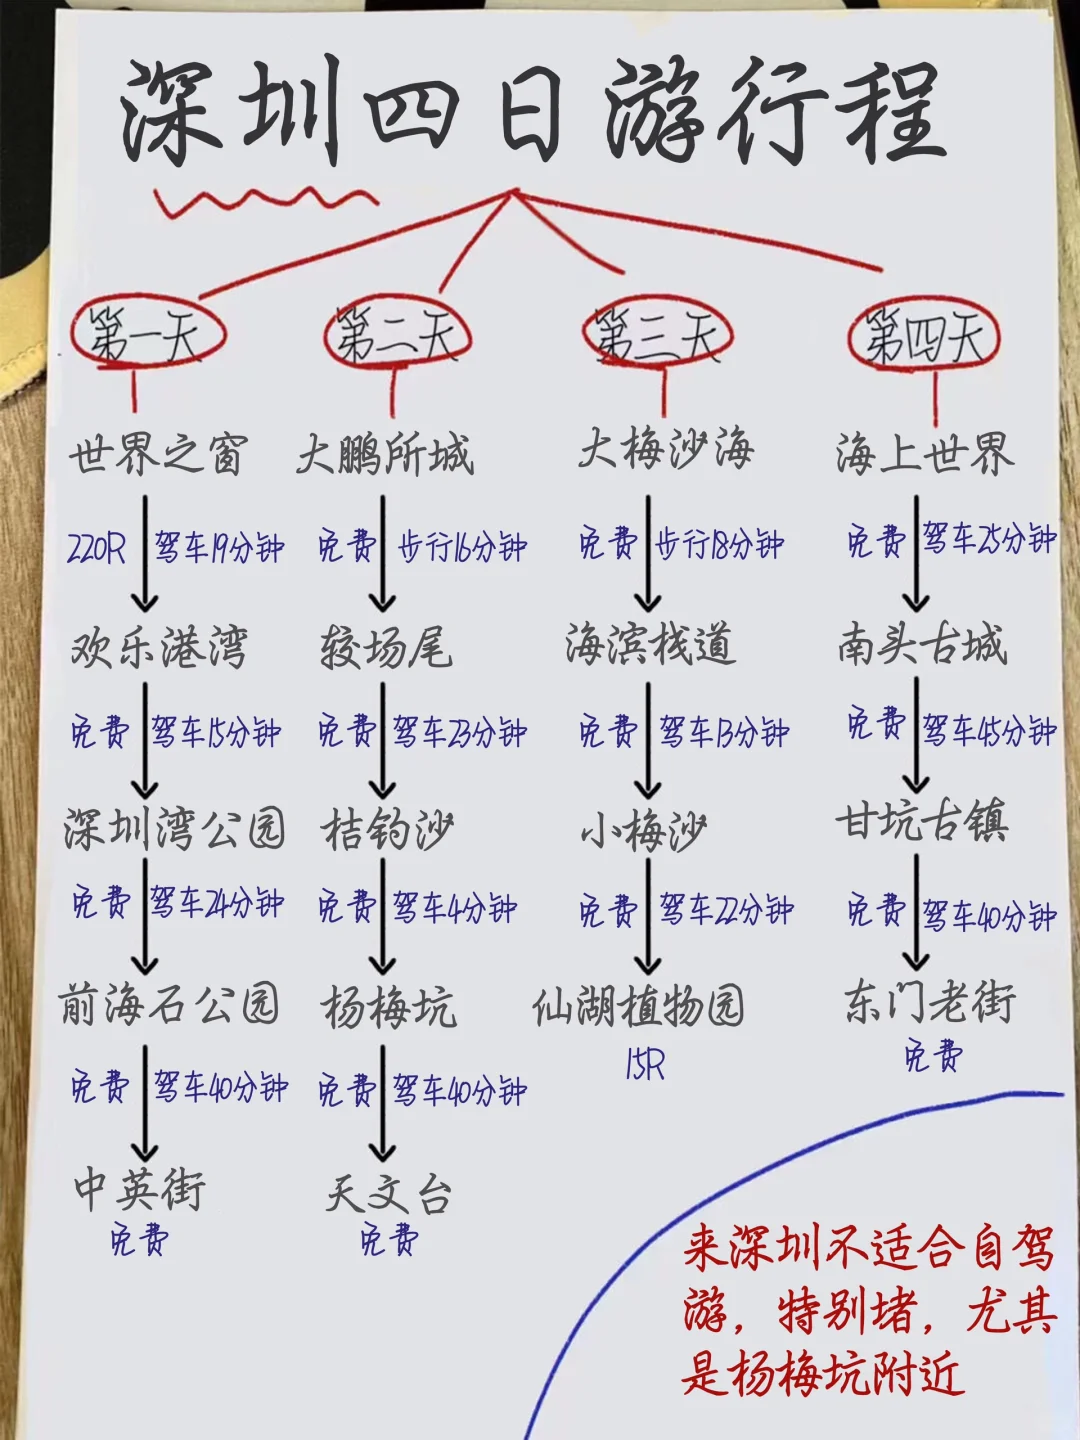 深圳四日游行程
第一天
世界之窗
220R 驾车19分钟
欢乐港湾
免费 驾车15分钟
深圳湾公园
免费 驾车24分钟
前海石公园
免费 驾车40分钟
中英街
免费
第二天
大鹏所城
免费 步行16分钟
较场尾
免费 驾车23分钟
桔钓沙
免费 驾车4分钟
杨梅坑
免费 驾车40分钟
天文台
免费
第三天
大梅沙海
免费 步行18分钟
海滨栈道
免费 驾车13分钟
小梅沙
免费 驾车22分钟
仙湖植物园
15R
第四天
海上世界
免费 驾车25分钟
南头古城
免费 驾车45分钟
甘坑古镇
免费 驾车40分钟
东门老街
免费
来深圳不适合自驾
游，特别堵，尤其
是杨梅坑附近